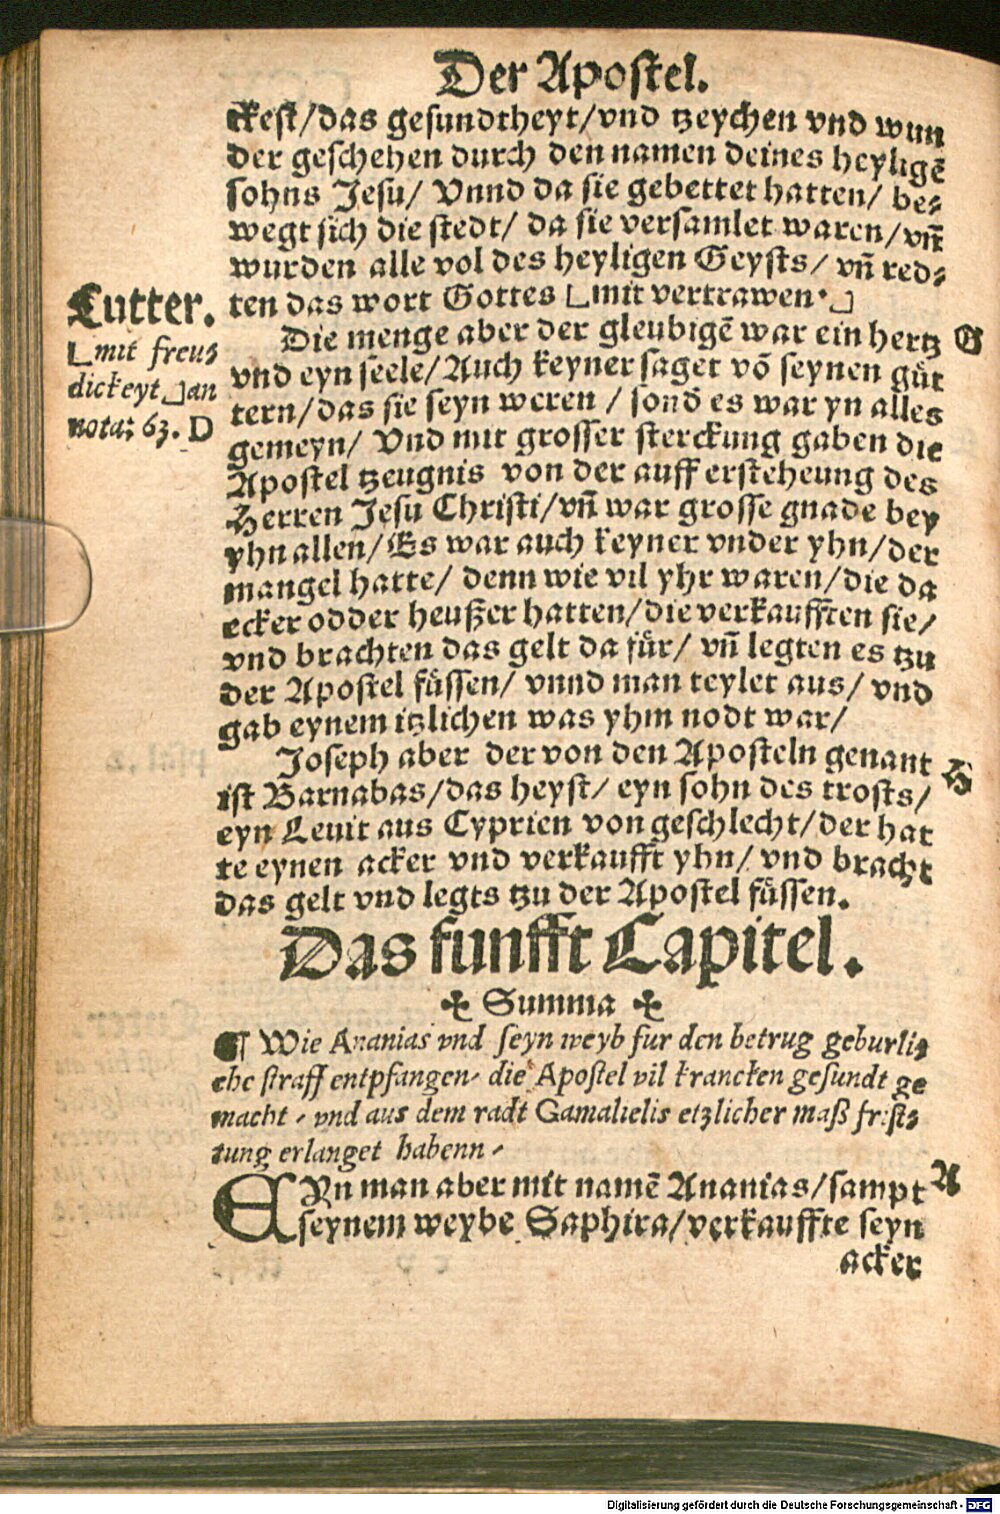 Der Apostel.
ckest/das gesundtheyt/vnd tzeychen vnd wun
der geschehen durch den namen deines heyligẽ
sohns Jesu/ Vnnd da sie gebettet hatten/ be⸗
wegt sich die stedt/ da sie versamlet waren/vñ
wurden alle vol des heyligen Geysts/ vñ red⸗
ten das wort Gottes ⌊mit vertrawen.⌋
Lutter.
⌊mit freu⸗
dickeyt⌋an
nota: 63. D
Die menge aber der gleubigẽ war ein hertz
G
vnd eyn seele/Auch keyner saget võ seynen gůt
tern/das sie seyn weren / sond̃ es war yn alles
gemeyn/ Vnd mit grosser sterckung gaben die
Apostel tzeugnis von der aufferstehung des
Herren Jesu Christi/vñ war grosse gnade bey
yhn allen/Es war auch keyner vnder yhn/der
mangel hatte/ denn wie vil yhr waren/die da
ecker odder heußer hatten/die verkaufften sie/
vnd brachten das gelt da fůr/ vñ legten es tzu
der Apostel fůssen/ vnnd man teylet aus/ vnd
gab eynem itzlichen was yhm nodt war/
Joseph aber der von den Aposteln genant
H
ist Barnabas/das heyst/ eyn sohn des trosts/
eyn Leuit aus Cyprien von geschlecht/der hat
te eynen acker vnd verkaufft yhn/ vnd bracht
das gelt vnd legts tzu der Apostel fůssen.
Das funfft Capitel.
✣ Summa ✣
¶ Wie Ananias vnd seyn weyb fur den betrug geburli⸗
che straff entpfangen, die Apostel vil krancken gesundt ge
macht, vnd aus dem radt Gamalielis etzlicher maß frist⸗
tung erlanget habenn,
EYn man aber mit namẽ Ananias/sampt
A
seynem weybe Saphira/verkauffte seyn
acker
Digitalisierung gefördert durch die Deutsche Forschungsgemeinschaft - DFG